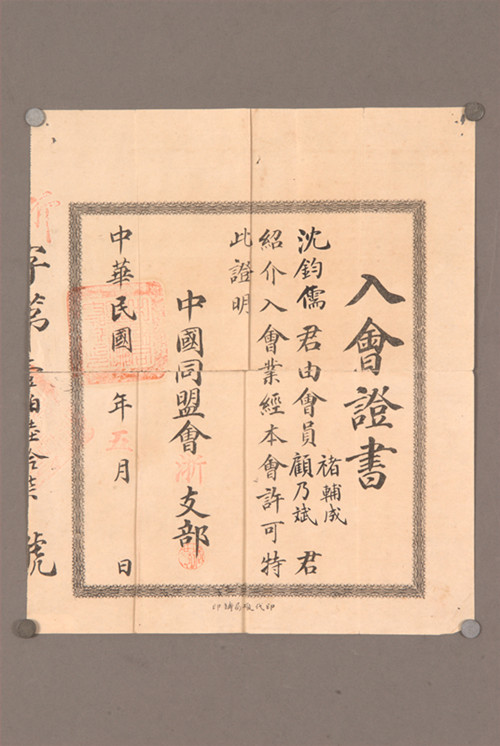 入會證書
沈鈞儒君由會員褚輔成顧乃斌君
紹介入會業經本會許可特
此證明
中國同盟會浙支部
中華民國 年五月 日
字第壹百陸拾柒號